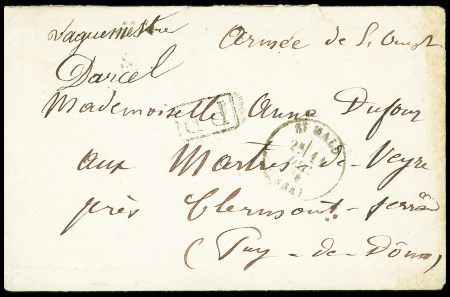 Vaguemestre Armée de l'Ouest
Darcel
Mademoiselle Anna Dufour
P.P.
St MALO
aux Martres-de-Veyre
près Clermont-ferrand
(Puy-de-Dôme)